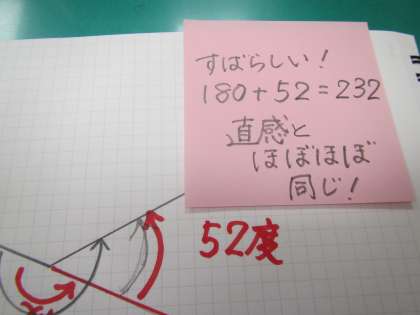 すばらしい!
180+52=232
直感と
ほぼほぼ
同じ!
52度